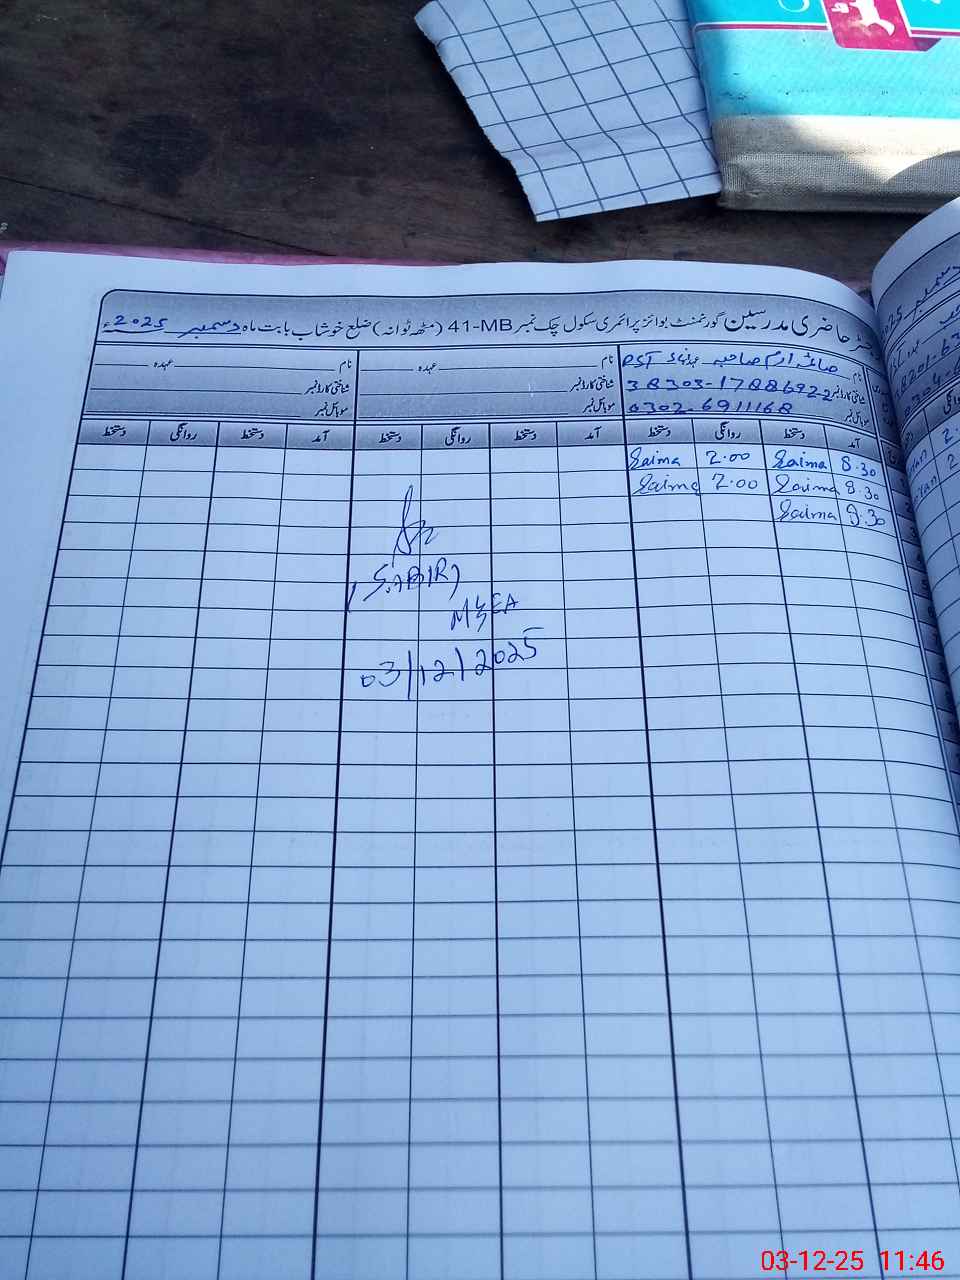 حاضری مدرسین گورنمنٹ بوائز پرائمری سکول چک نمبر 41-MB (مٹھہ ٹوانہ) ضلع خوشاب بابت ماہ دسمبر 2025ء
نام صائمہ ارم صاحبہ عہدہ PST نام عہدہ نام عہدہ
شناختی کارڈ نمبر 38303-1788692-2 شناختی کارڈ نمبر شناختی کارڈ نمبر
موبائل نمبر 0302-6911168 موبائل نمبر موبائل نمبر
آمد دستخط روانگی دستخط آمد دستخط روانگی دستخط آمد دستخط روانگی دستخط
8.30 Saima 2.00 Saima
8.30 Saima 2.00 Saima
8.30 Saima
(SABIR)
MEA
03/12/2025
03-12-25 11:46